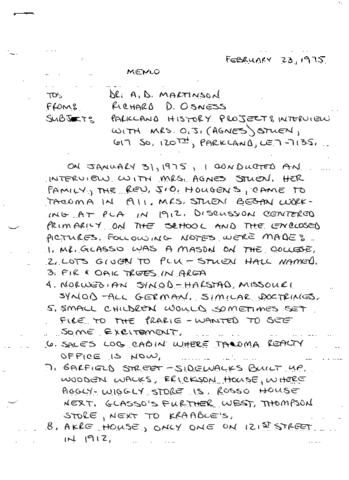 FEBRUARY 23, 1975
MEMO
TO: DR. A. D. MARTINSON
FROM: RICHARD D. OSNESS
SUBJECT: PARKLAND HISTORY PROJECT & INTERVIEW
WITH MRS. O.J. (AGNES) STUEN,
617 SO. 120TH, PARKLAND, LE. 7-7135.
ON JANUARY 31, 1975, I CONDUCTED AN
INTERVIEW WITH MRS. AGNES STUEN. HER
FAMILY, THE REV. J.O. HOUGENS, CAME TO
TACOMA IN 1911. MRS. STUEN BEGAN WORK-
ING AT PLA IN 1912. DISCUSSION CENTERED
PRIMARILY ON THE SCHOOL AND THE ENCLOSED
PICTURES. FOLLOWING NOTES WERE MADE:
1. MR. GLASSO WAS A MASON ON THE COLLEGE.
2. LOTS GIVEN TO PLU - STUEN HALL NAMED.
3. FIR & OAK TREES IN AREA
4. NORWEGIAN SYNOD - HARSTAD, MISSOURI
SYNOD - ALL GERMAN. SIMILAR DOCTRINES.
5. SMALL CHILDREN WOULD SOMETIMES SET
FIRE TO THE PRARIE - WANTED TO SEE
SOME EXCITEMENT.
6. SALES LOG CABIN WHERE TACOMA REALTY
OFFICE IS NOW.
7. GARFIELD STREET - SIDEWALKS BUILT UP.
WOODEN WALKS, ERICKSON HOUSE, WHERE
PIGGLY-WIGGLY STORE IS. ROSSO HOUSE
NEXT. GLASSO'S FURTHER WEST. THOMPSON
STORE, NEXT TO KRAABLE'S.
8. AKRE HOUSE, ONLY ONE ON 121ST STREET
IN 1912.